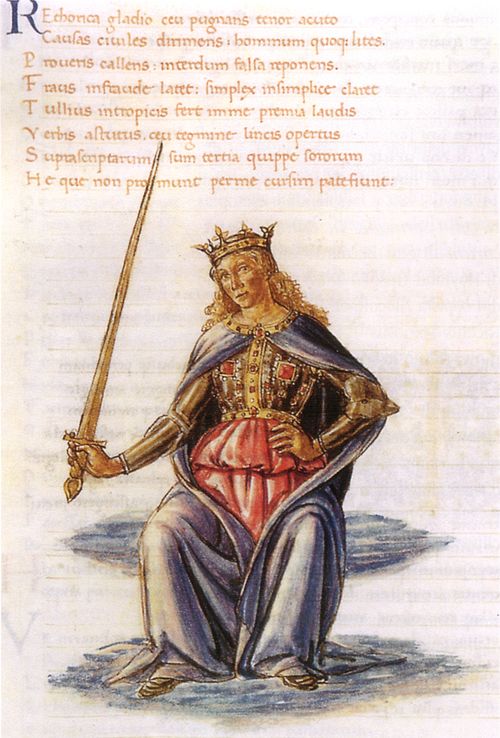 REthorica gladio ceu pugnans tenor acuto
Causas ciuiles dirimens: hominum quoq; lites.
P ro ueris callens: interdum falsa reponens.
F raus in fraude latet: simplex in simplice claret
T ullius in tropicis fert in me premia laudis
V erbis astutus, ceu tegmine lincis opertus
S uprascriptarum sum tertia quippe sororum
H e que non promunt per me cursim patefiunt: